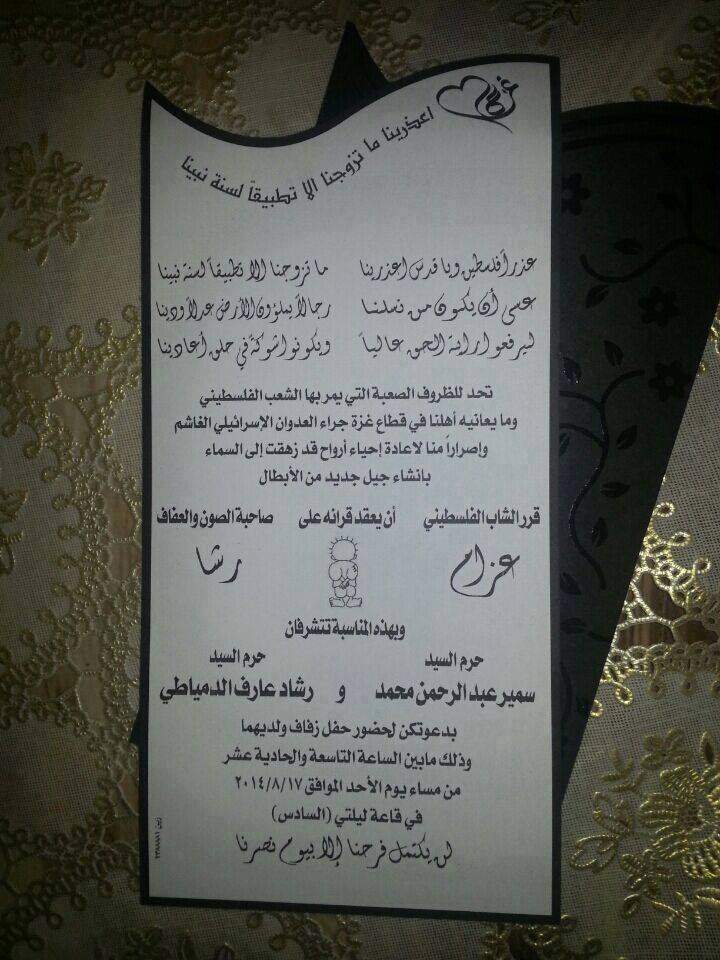 اعذرينا ما تزوجنا الا تطبيقاً لسنة نبينا
عذراً فلسطين ويا قدس اعذرينا ما تزوجنا إلا تطبيقاً لسنة نبينا
عسى أن يكون من نسلنا رجالاً يملؤون الأرض عدلاً ودينا
ليرفعوا راية الحق عالياً ويكونوا شوكة في حلق أعادينا
تحد للظروف الصعبة التي يمر بها الشعب الفلسطيني
وما يعانيه أهلنا في قطاع غزة جراء العدوان الإسرائيلي الغاشم
وإصراراً منا لاعادة إحياء أرواح قد زهقت إلى السماء
بانشاء جيل جديد من الأبطال
قرر الشاب الفلسطيني أن يعقد قرانه على صاحبة الصون والعفاف
عزام رشا
وبهذه المناسبة تتشرفان
حرم السيد حرم السيد
سمير عبد الرحمن محمد و رشاد عارف الدمياطي
بدعوتكن لحضور حفل زفاف ولديهما
وذلك مابين الساعة التاسعة والحادية عشر
من مساء يوم الأحد الموافق ٢٠١٤/٨/١٧
في قاعة ليلتي (السادس)
لن يكتمل فرحنا إلا بيوم نصرنا